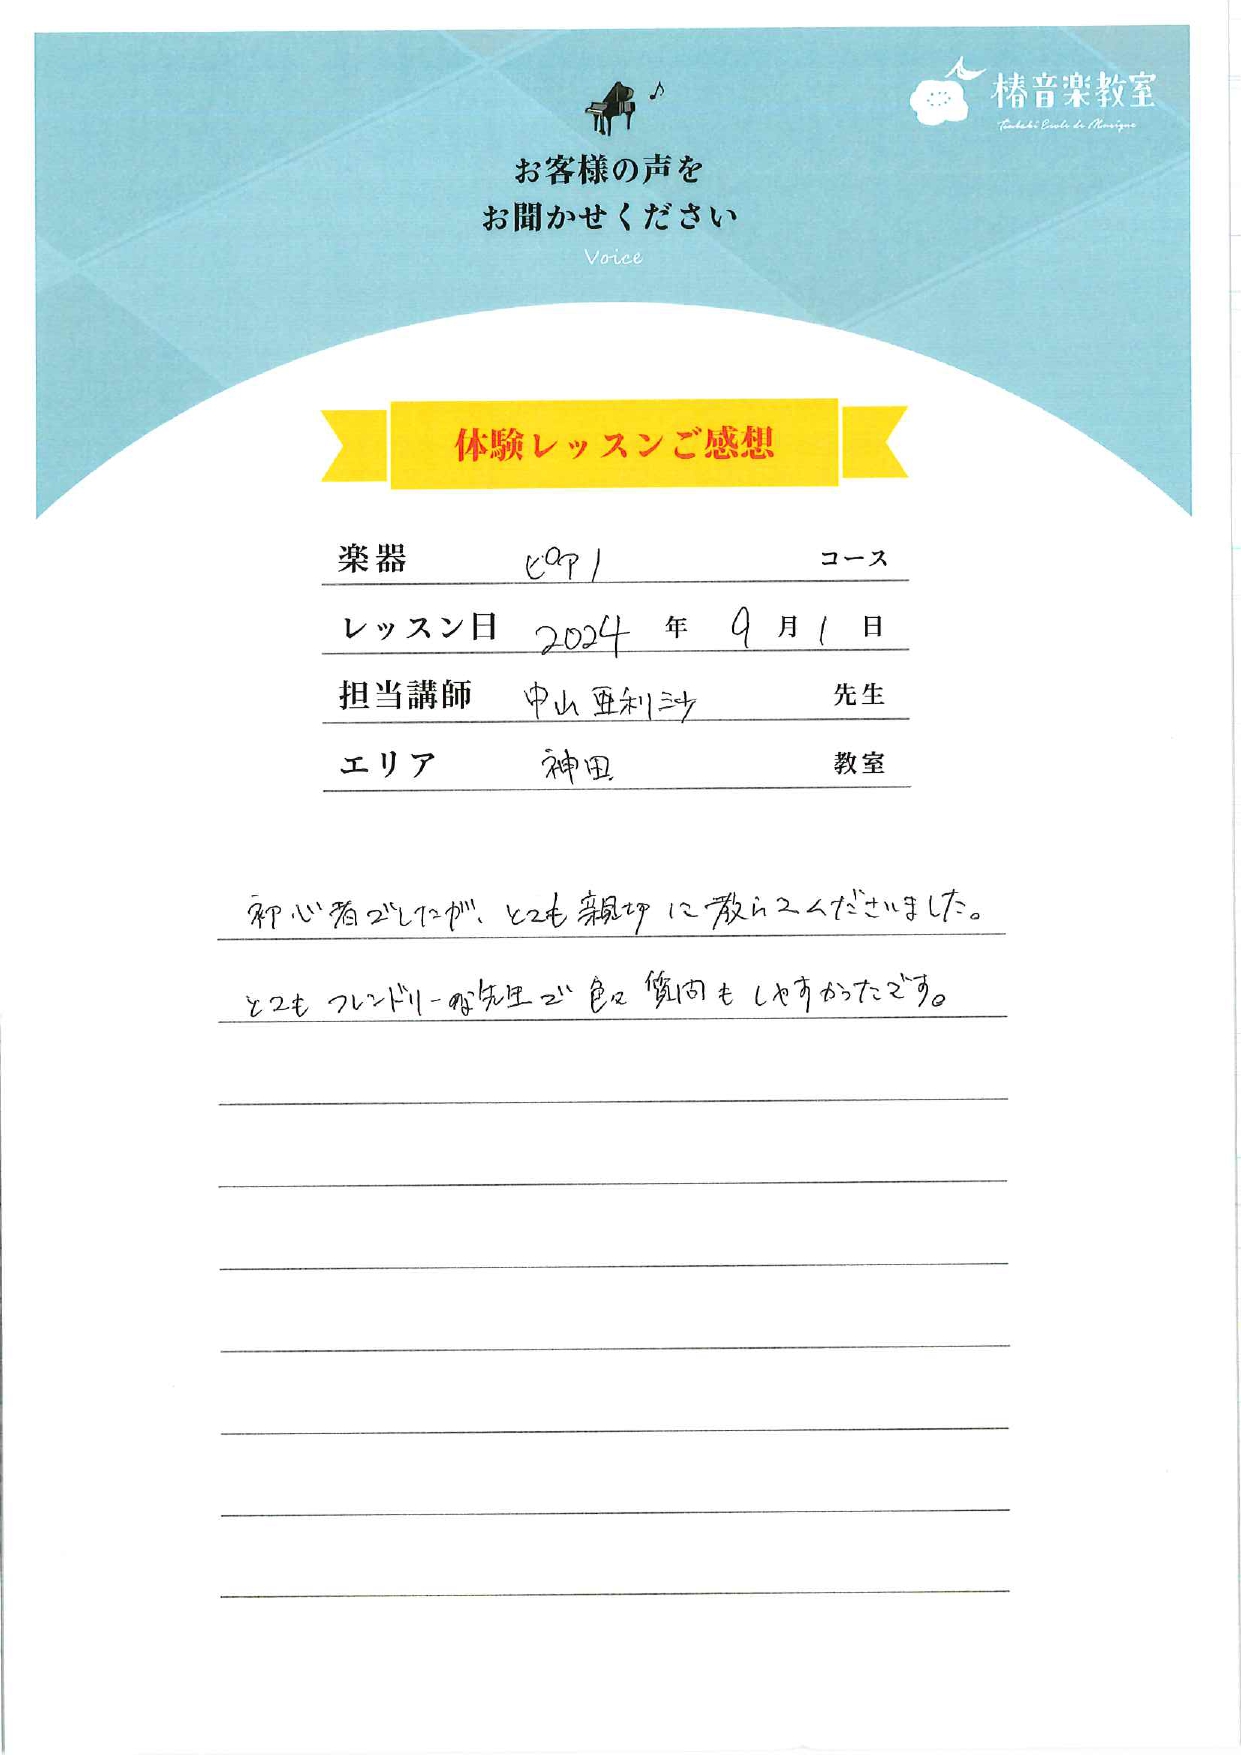 椿音楽教室
Tsubaki Ecole de Musique
お客様の声を
お聞かせください
Voice
体験レッスンご感想
楽器 ピアノ コース
レッスン日 2024 年 9 月 1 日
担当講師 中山 亜利沙 先生
エリア 神田 教室
初心者でしたが、とても親切に教えてくださいました。
とてもフレンドリーな先生で色々質問もしやすかったです。